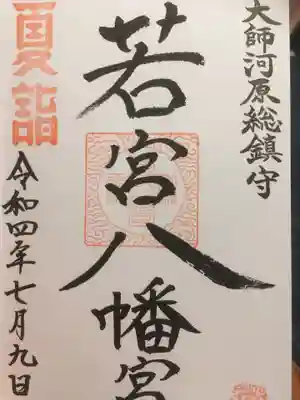 大師河原総鎮守
若宮八幡宮
夏詣
令和四年七月九日